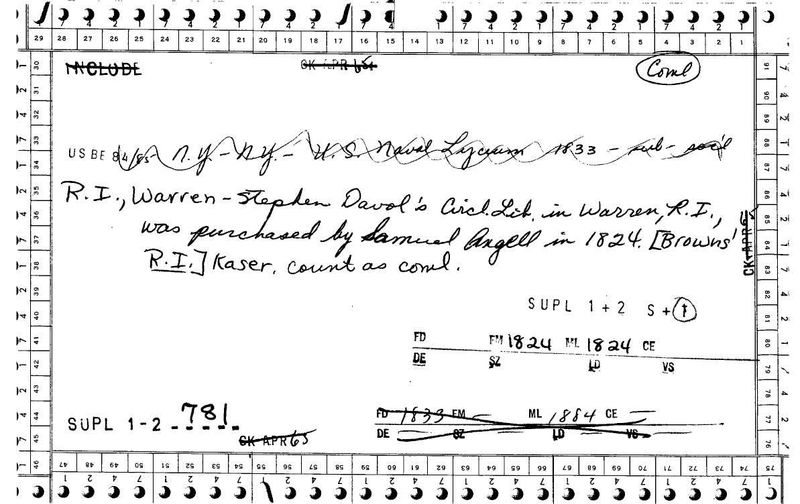 29 28 27 26 25 24 23 22 21 20 19 18 17 16 15 14 13 12 11 10 9 8 7 6 5 4 3 2 1
INCLUDE CK APR 65 Coml
US BE 84/85 N.Y. - N.Y. - U.S. Naval Lyceum 1833 - sub - soc'l
R.I., Warren - Stephen Davol's Circl. Lib. in Warren, R.I.,
was purchased by Samuel Angell in 1824. [Browns'
R.I.] Kaser. count as coml.
CK APR 65
SUPL 1+2 S+1
FD FM 1824 ML 1824 CE
DE SZ LD VS
SUPL 1-2 781
FD 1833 FM — ML 1884 CE —
CK APR 65
DE SZ LD VS
30 31 32 33 34 35 36 37 38 39 40 41 42 43 44 45 46
91 90 89 88 87 86 85 84 83 82 81 80 79 78 77 76
47 48 49 50 51 52 53 54 55 56 57 58 59 60 61 62 63 64 65 66 67 68 69 70 71 72 73 74 75